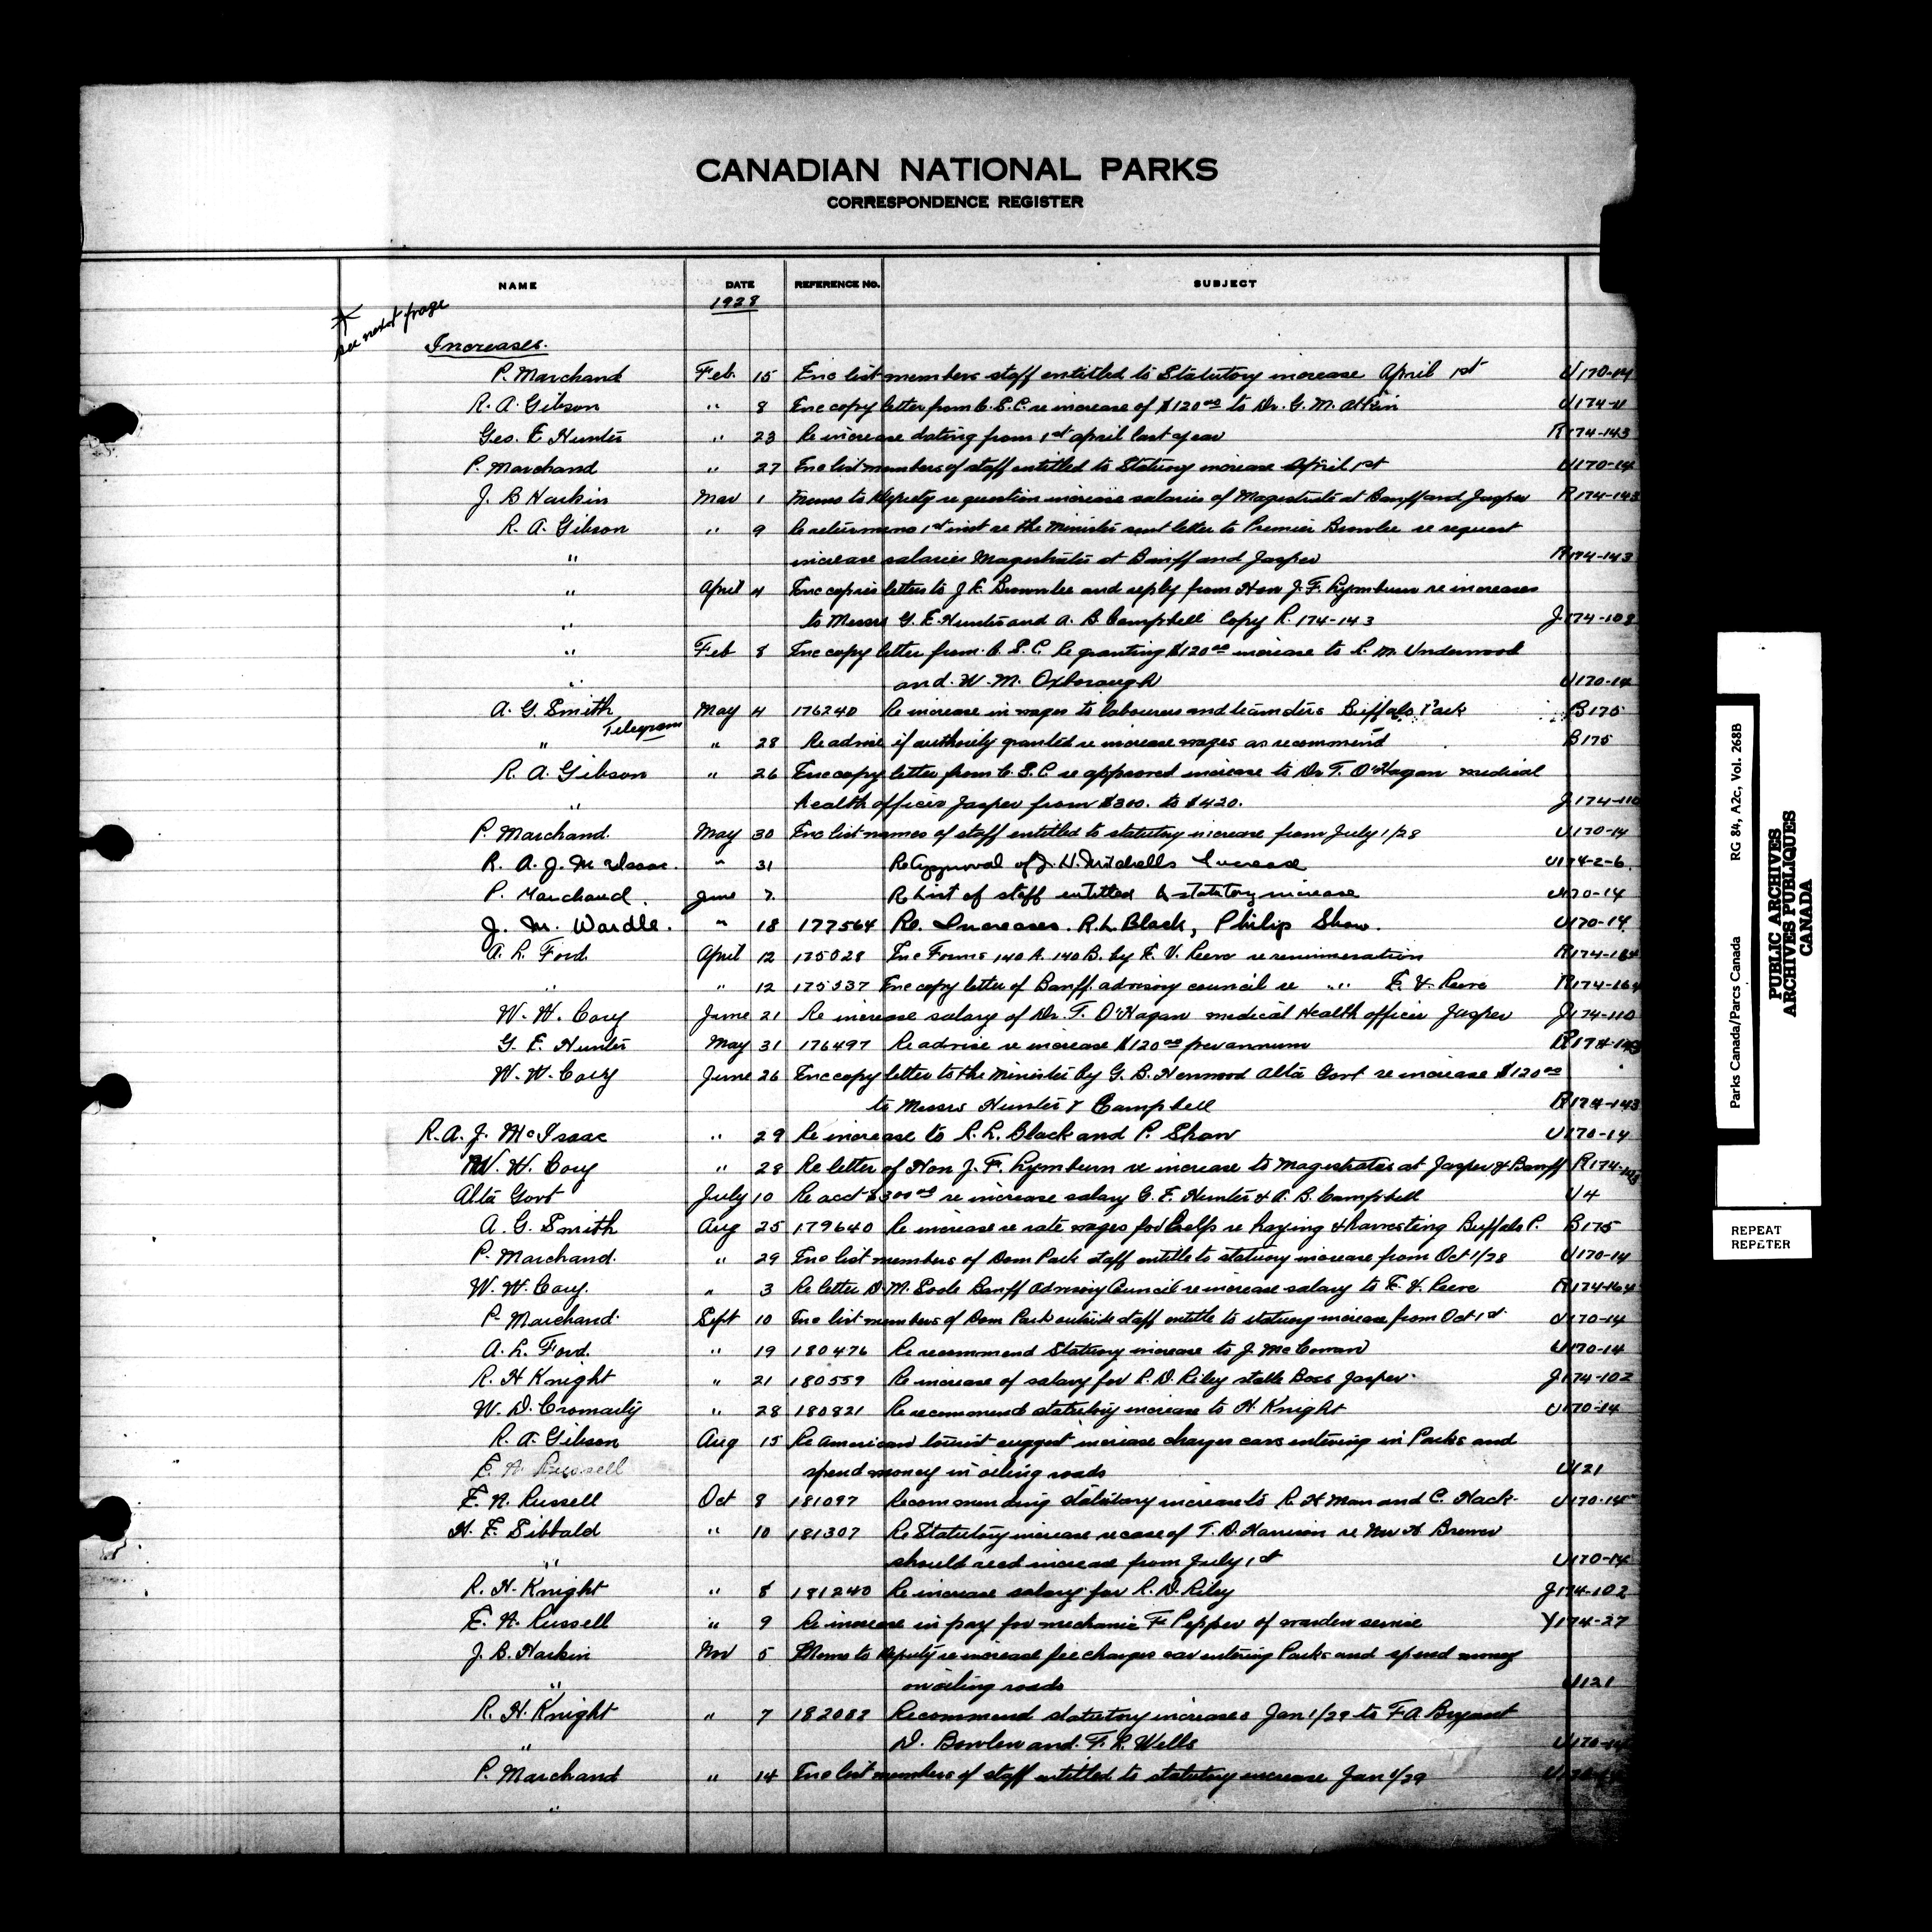 CANADIAN NATIONAL PARKS
CORRESPONDENCE REGISTER
NAME DATE REFERENCE NO. SUBJECT
1928
see next page
Increases.
P. Marchand Feb. 15 Enc list members staff entitled to Statutory increase April 1st U170-14
R. A. Gibson " 8 Enc copy letter from C.S.C. re increase of $120 00 to Dr. G. M. Atkin U174-11
Geo. E Hunter " 23 Re increase dating from 1st April last year R174-143
P. Marchand " 27 Enc list members of staff entitled to Statuory increase April 1st U170-14
J. B Harkin Mar 1 Memo to Deputy re question increase salaries of Magistrate at Banff and Jasper R174-143
R. A. Gibson " 9 Re return memo 1st inst re the Minister sent letter to Premier Brownlee re request
" increase salaries Magistrates at Banff and Jasper R174-143
" April 4 Enc copies letters to J. E. Brownlee and reply from Hon J. F. Lymburn re increases
" to Messrs G. E. Hunter and A. B. Campbell Copy R. 174-143 J174-108
" Feb 8 Enc copy letter from C.S.C. Re granting $120 00 increase to R. M. Underwood
" and W. M. Oxborough U170-14
A. G. Smith May 4 176240 Re increase in wages to labourers and teamsters Buffalo Park B175
" Telegram " 28 Re advise if authority granted re increase wages as recommend B175
R. A. Gibson " 26 Enc copy letter from C.S.C re approved increase to Dr T. O'Hagan medical
" health officer Jasper from $300. to $420. J174-110
P. Marchand. May 30 Enc list names of staff entitled to statutory increase from July 1/28 U170-14
R. A. J. McIsaac. " 31 Re Approval of J. H. Mitchells Increase U174-2-6.
P. Marchand. June 7. R List of staff entitled to statutory increase U170-14
J. M. Wardle. " 18 177564 Re. Increases. R. L. Black, Philip Shaw. U170-14.
A. L. Ford. April 12 175528 Enc Forms 140 A. 140 B. by F. V. Reeve re renumeration R174-164
" " 12 175537 Enc copy letter of Banff advisory council re " " F. V. Reeve R174-164
W. W. Cory June 21 Re increase salary of Dr. T. O'Hagan medical Health officer Jasper J174-110
G. E. Hunter May 31 176497 Re advise re increase $120 00 per annum R174-143
W. W. Cory June 26 Enc copy letter to the Minister by G. B. Henwood Alta Govt re increase $120 00
to Messrs Hunter & Campbell R174-143
R. A. J. McIsaac " 29 Re increase to R. L. Black and P. Shaw U170-14
W. W. Cory " 28 Re letter of Hon J. F. Lymburn re increase to Magistrates at Jasper & Banff R174-143
Alta Govt July 10 Re acct $300 00 re increase salary G. E. Hunter & A. B. Campbell U4
A. G. Smith Aug 25 179640 Re increase re rate wages for help re haying & harvesting Buffalo P. B175
P. Marchand. " 29 Enc list members of Dom Park staff entitle to statuory increase from Oct 1/28 U170-14
W. W. Cory. " 3 Re letter D. M. Soole Banff Advisory Council re increase salary to F. V. Reeve R174-164
P. Marchand. Sept 10 Enc list members of Dom Park outside staff entitle to statuory increase from Oct 1st U170-14
A. L. Ford. " 19 180476 Re recommend Statuory increase to J. McCowan U170-14
R. H Knight " 21 180559 Re increase of salary for R. D. Riley stable Boss Jasper. J174-102
W. D. Cromarty " 28 180821 Re recommend statutory increase to H Knight U170-14
R. A. Gibson Aug 15 Re American tourist suggest increase charges cars entering in Parks and
E. N. Russell spend money in oiling roads U121
E. N. Russell Oct 8 181097 Recommending statutory increase to R. H Man and C. Hack. U170-14
H. E. Sibbald " 10 181307 Re Statutory increase re case of T. D. Harrison re Mr. H. Brewer
" should recd increase from July 1st U170-14
R. H. Knight " 8 181240 Re increase salary for R. D. Riley J174-102
E. N. Russell " 9 Re increase in pay for mechanic F. Pepper of warden service Y174-27
J. B. Harkin Nov 5 Memo to Deputy re increase fee charges car entering Parks and spend money
" on oiling roads U121
R. H. Knight " 7 182082 Recommend statutory increases Jan 1/29 to F A Bryant
" D. Bowlen and F. L. Wells U170-14
P. Marchand " 14 Enc list members of staff entitled to statutory increase Jan 1/29
"
Parks Canada/Parcs Canada RG 84, A2c, Vol. 268B
PUBLIC ARCHIVES
ARCHIVES PUBLIQUES
CANADA
REPEAT
REPETER